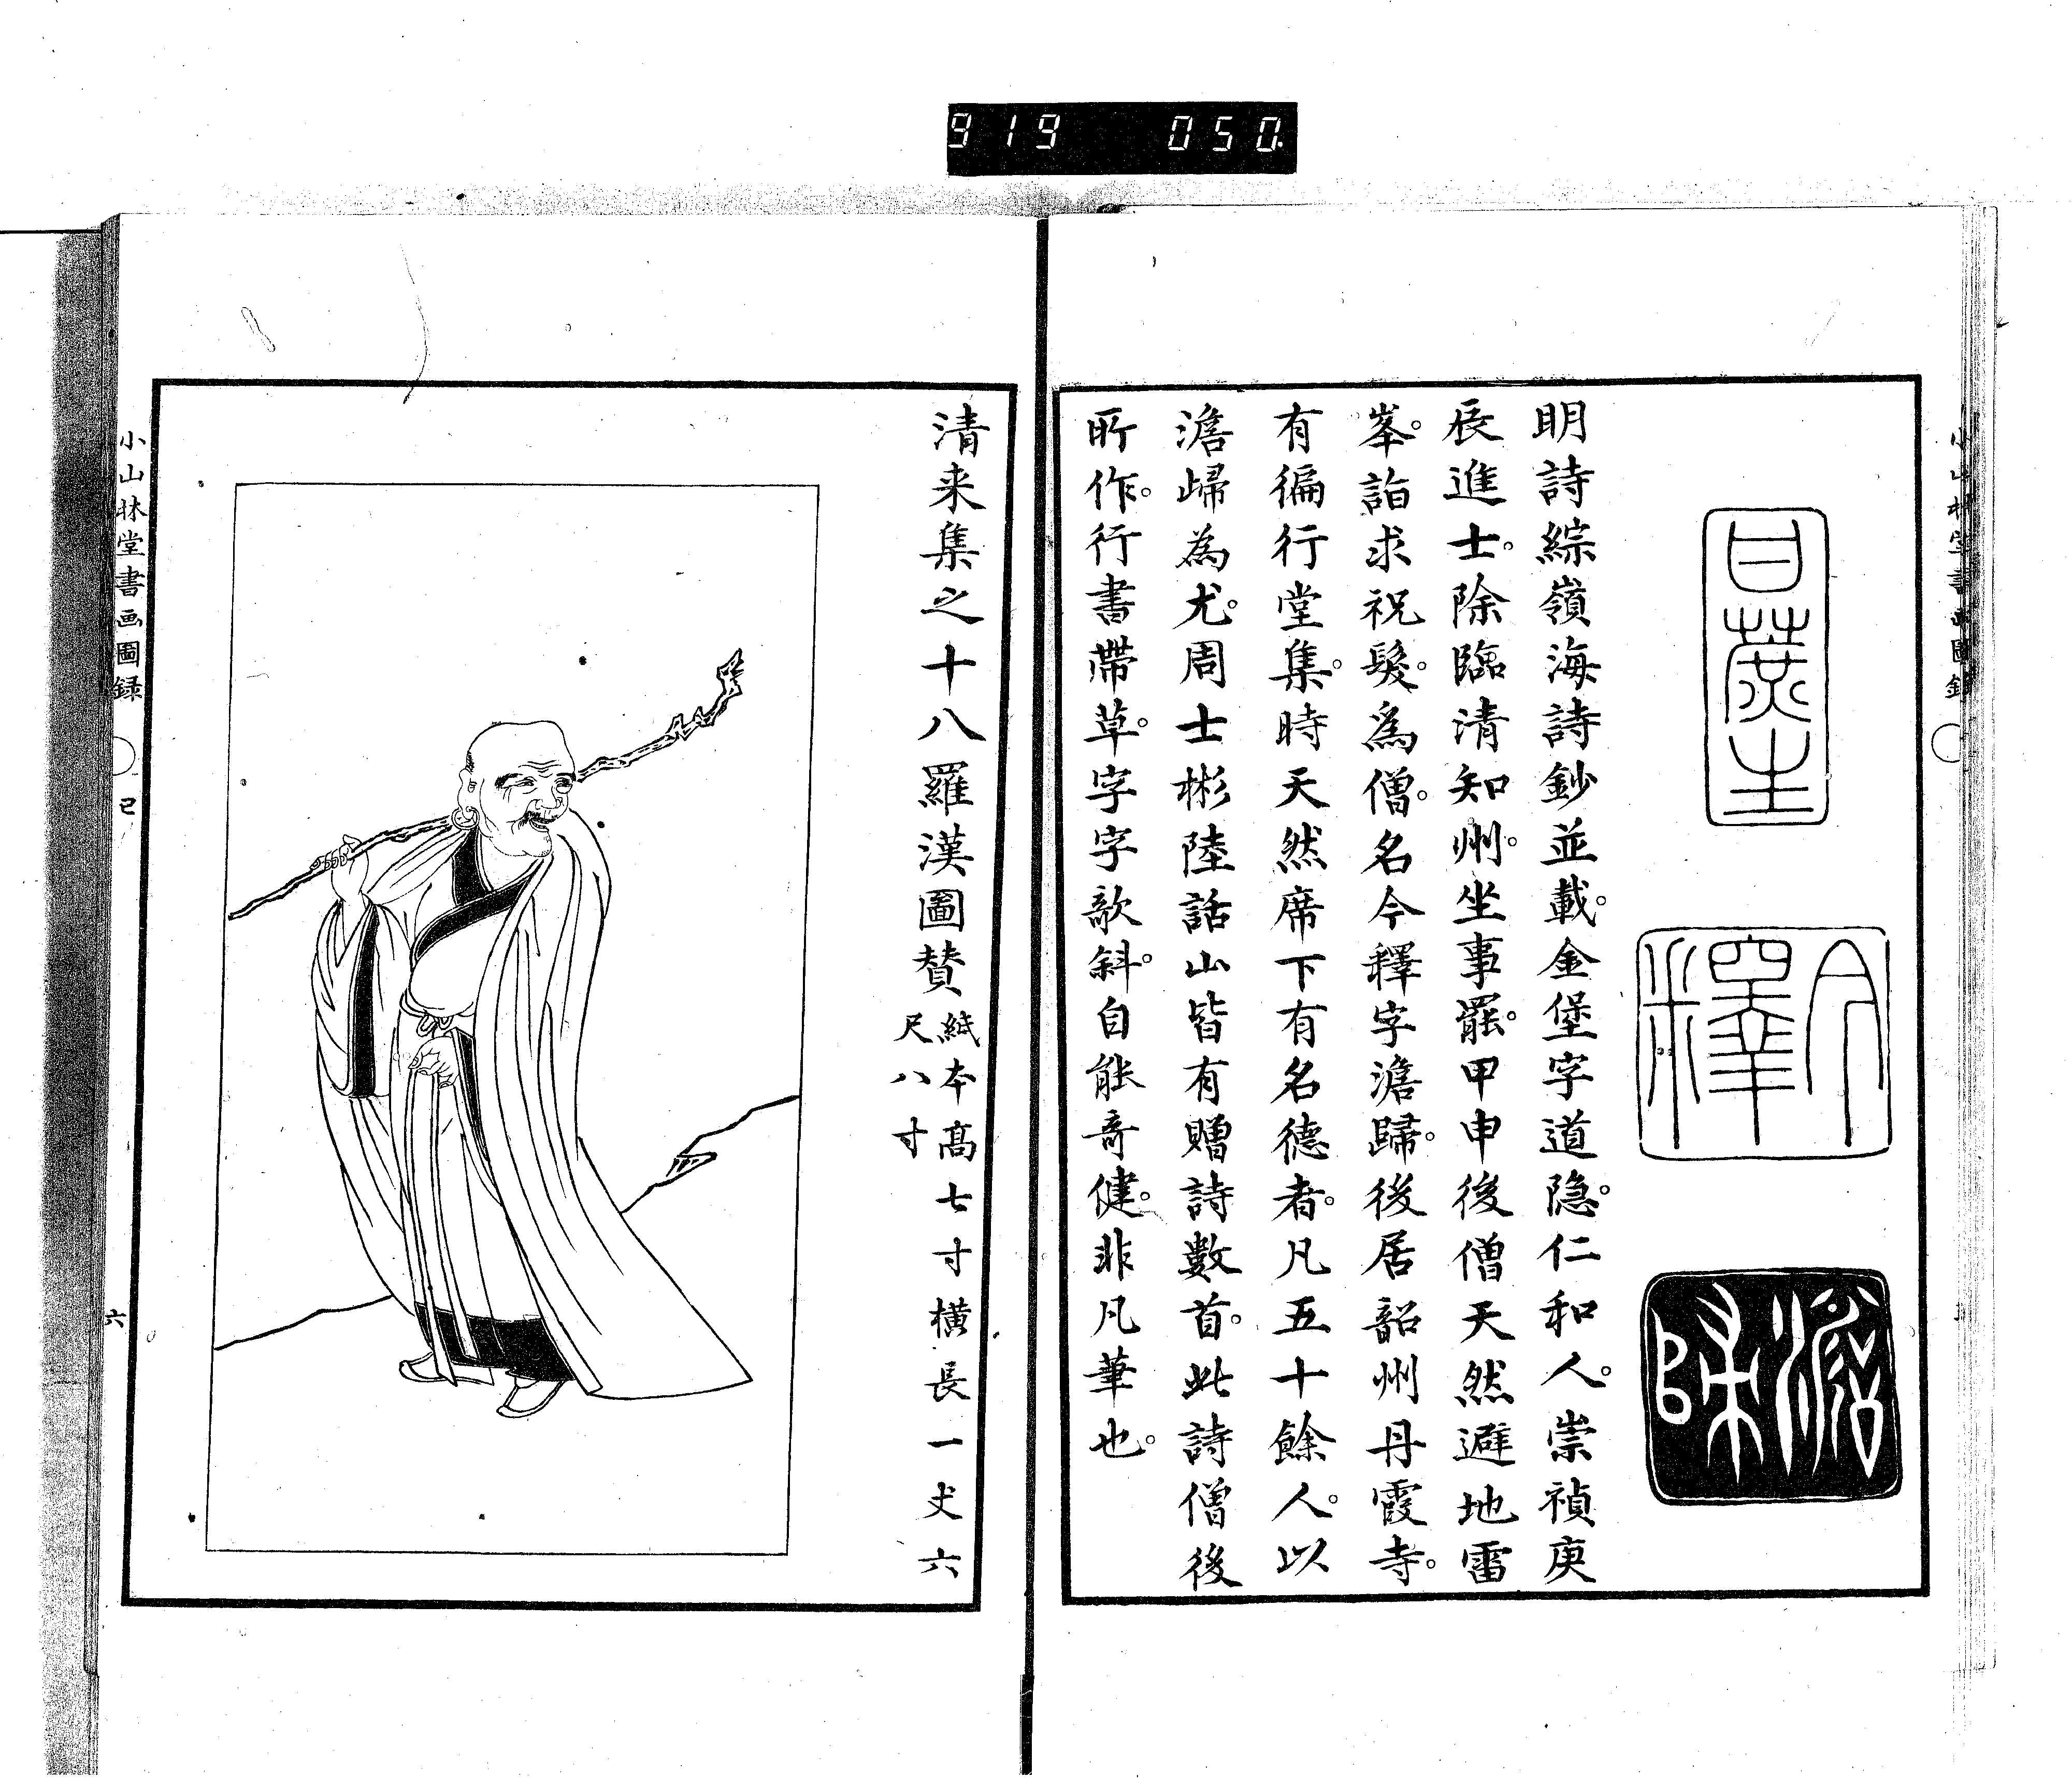 919 050.
甘蔗生
今釋
澹歸
明詩綜嶺海詩鈔並載。金堡字道隱。仁和人。崇禎庚
辰進士。除臨清知州。坐事罷。甲申後僧天然避地雷
峯。詣求祝髮。爲僧。名今釋字澹歸。後居韶州丹霞寺。
有徧行堂集。時天然席下有名德者。凡五十餘人。以
澹歸為尤。周士彬陸話山皆有贈詩數首。此詩僧後
所作。行書帶草。字字欹斜。自能奇健。非凡筆也。
清来集之十八羅漢圖贊 紙本高七寸橫長一丈六
尺八寸
小山林堂書画圖録 巳 六